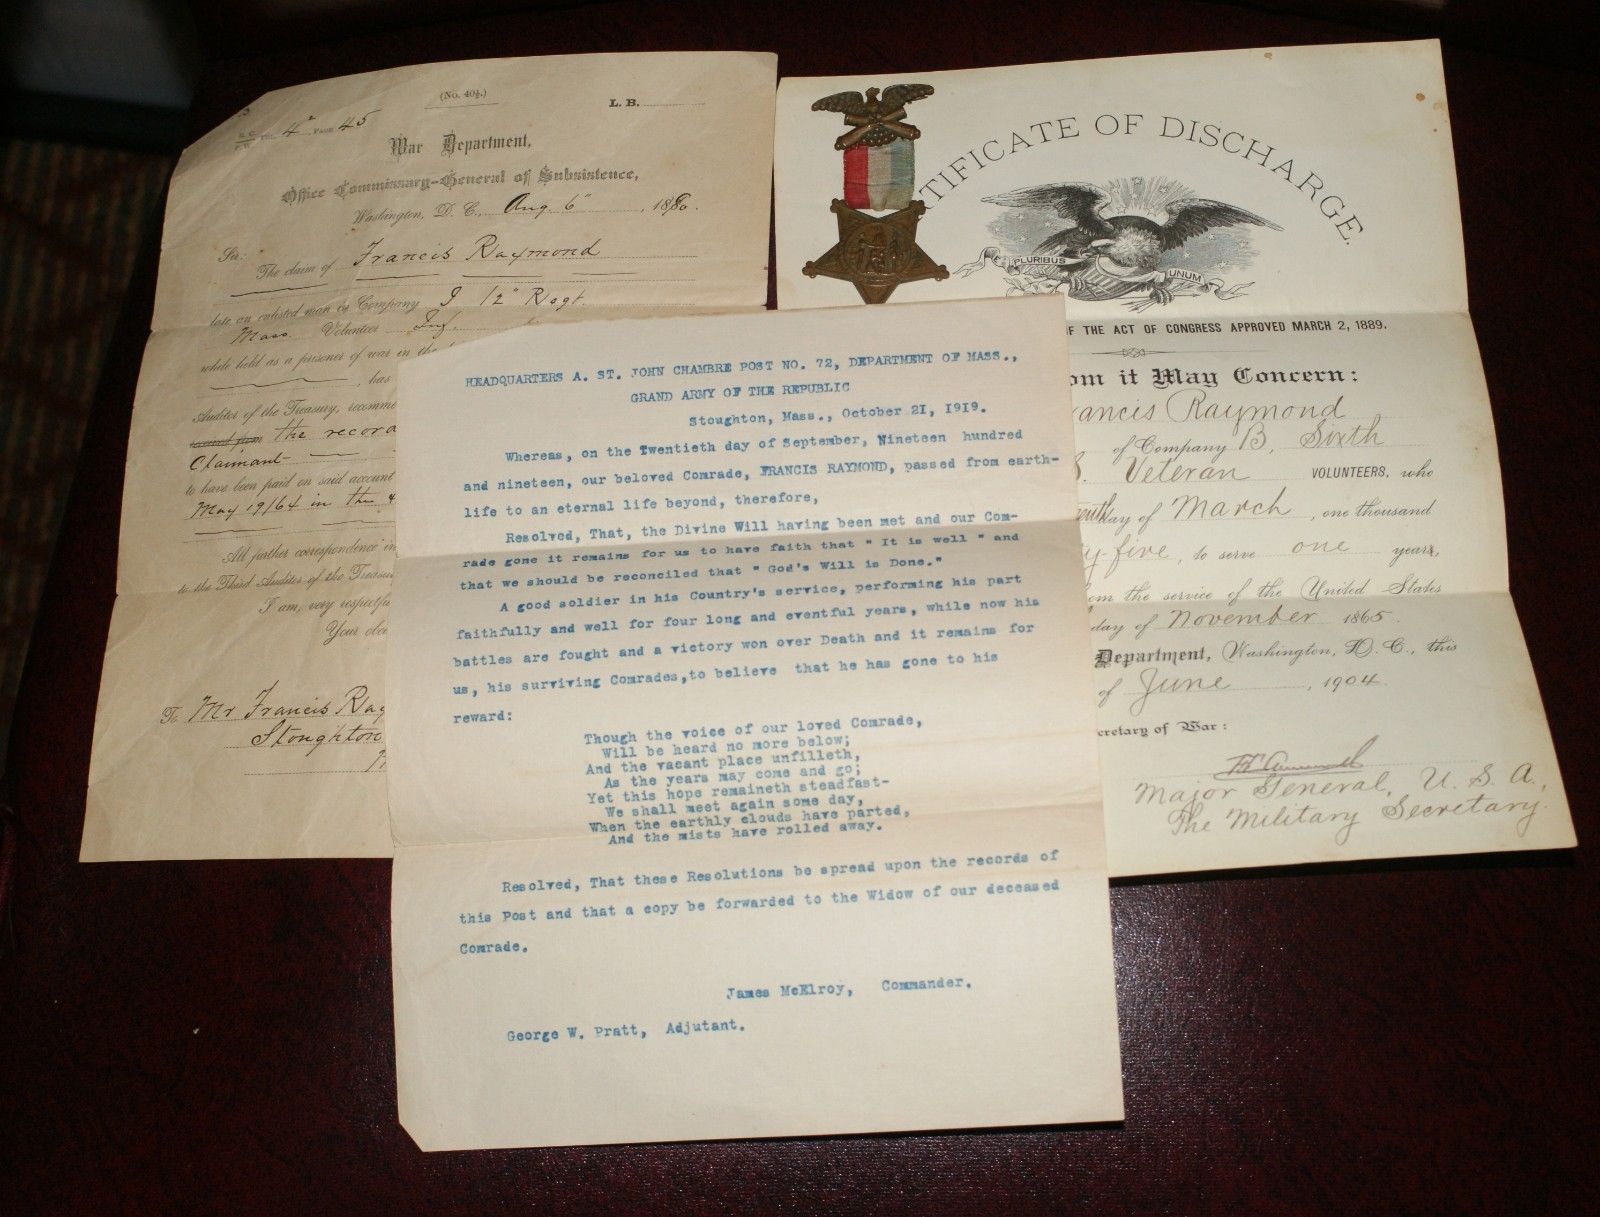 (No. 40½.)
L. B.
4" Page 45
War Department,
Office Commissary-General of Subsistence,
Washington, D. C., Aug. 6", 1880.
Sir:
The claim of Francis Raymond
late an enlisted man in Company I 12" Regt.
Mass Volunteer Inf.
while held as a prisoner of war in the
, has
Auditor of the Treasury, recomme
received from the record
Claimant
to have been paid on said account
May 19/64 in the
All further correspondence in
to the Third Auditor of the Treasu
I am, very respectfu
Your obe
To Mr Francis Ray
Stoughton
TIFICATE OF DISCHARGE.
PLURIBUS UNUM
OF THE ACT OF CONGRESS APPROVED MARCH 2, 1889.
om it May Concern:
rancis Raymond
of Company B, Sixth
S. Veteran VOLUNTEERS, who
day of March, one thousand
ty-five, to serve one years,
om the service of the United States
day of November 1865.
Department, Washington, D. C., this
of June, 1904
ecretary of War:
Major General, U. S. A.,
The Military Secretary.
HEADQUARTERS A. ST. JOHN CHAMBRE POST NO. 72, DEPARTMENT OF MASS.,
GRAND ARMY OF THE REPUBLIC
Stoughton, Mass., October 21, 1919.
Whereas, on the Twentieth day of September, Nineteen hundred
and nineteen, our beloved Comrade, FRANCIS RAYMOND, passed from earth-
life to an eternal life beyond, therefore,
Resolved, That, the Divine Will having been met and our Com-
rade gone it remains for us to have faith that " It is well " and
that we should be reconciled that " God's Will is Done."
A good soldier in his Country's service, performing his part
faithfully and well for four long and eventful years, while now his
battles are fought and a victory won over Death and it remains for
us, his surviving Comrades,to believe that he has gone to his
reward:
Though the voice of our loved Comrade,
Will be heard no more below;
And the vacant place unfilleth,
As the years may come and go;
Yet this hope remaineth steadfast-
We shall meet again some day,
When the earthly clouds have parted,
And the mists have rolled away.
Resolved, That these Resolutions be spread upon the records of
this Post and that a copy be forwarded to the Widow of our deceased
Comrade.
James McElroy, Commander.
George W. Pratt, Adjutant.